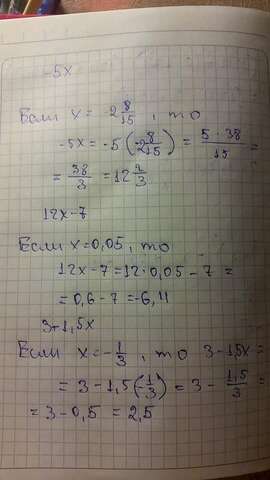 -5x
Если x = -2 8/15, то
-5x = -5(-2 8/15) = 5·38/15 =
= 38/3 = 12 2/3
12x-7
Если x=0,05, то
12x-7=12·0,05-7=
=0,6-7=-6,4
3+1,5x
Если x=-1/3, то 3-1,5x=
=3-1,5(-1/3)=3-1,5/3=
=3-0,5=2,5